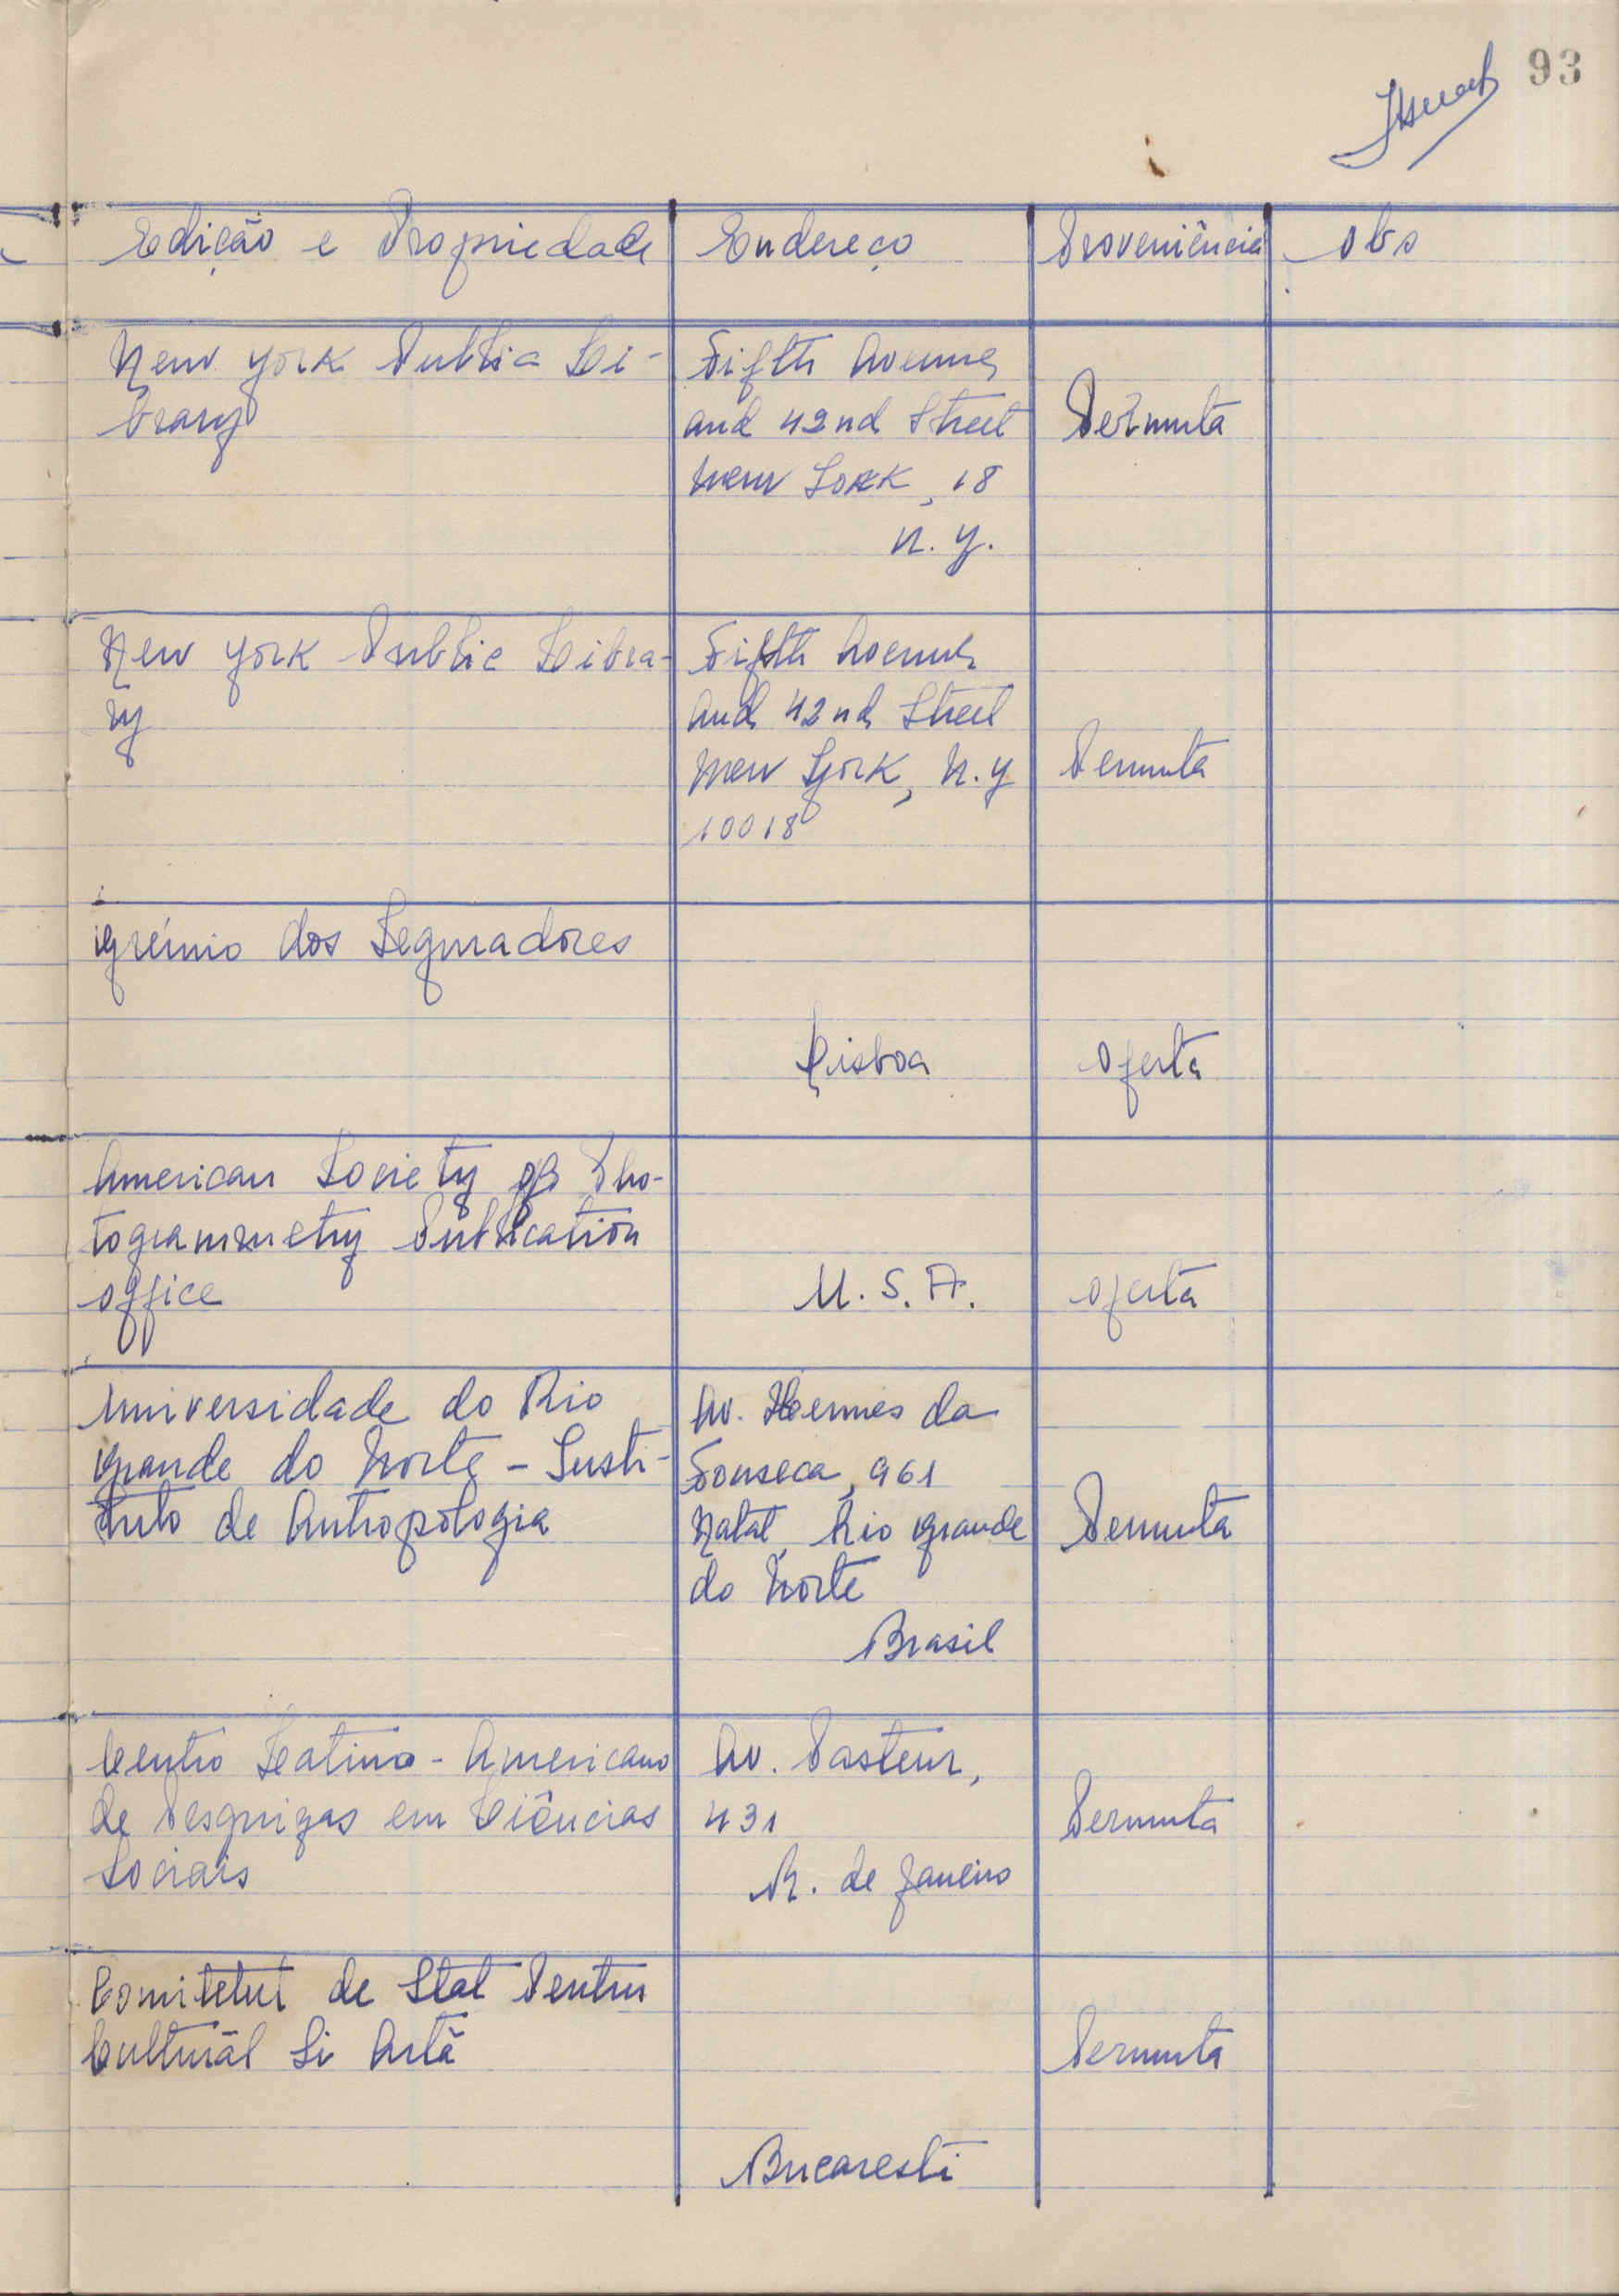 93
Edição e Propriedade Endereço Proveniência obs
New York Public Li-
brary
Fifth Avenue
and 42nd Street
New York, 18
N. Y.
Permuta
New York Public Libra-
ry
Fifth Avenue
and 42nd Street
New York, N. Y
10018
Permuta
Grémio dos Seguradores
Lisboa
Oferta
American Society of Pho-
togrammetry Publication
Office
U. S. A.
Oferta
Universidade do Rio
Grande do Norte - Insti-
tuto de Antropologia
Av. Hermes da
Fonseca, 961
Natal, Rio Grande
do Norte
Brasil
Permuta
Centro Latino-Americano
de Pesquizas em Ciências
Sociais
Av. Pasteur,
431
R. de Janeiro
Permuta
Comitetul de Stat Pentru
Culturăl Si Artă
Bucaresti
Permuta